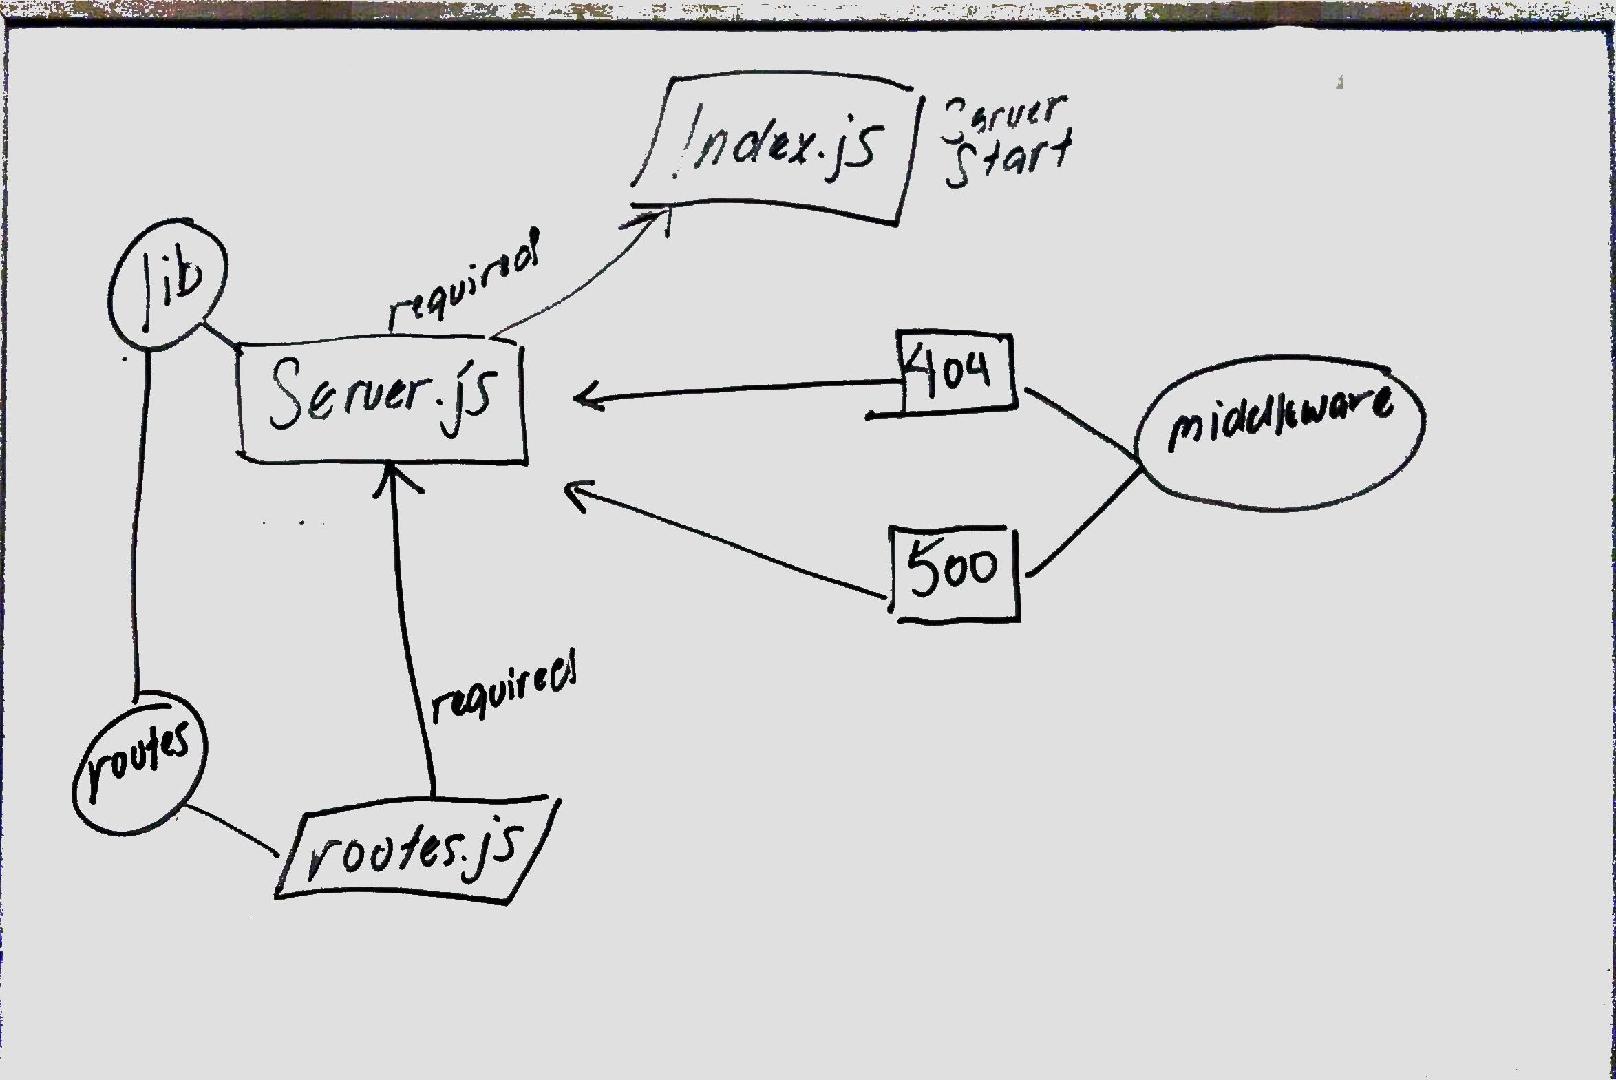 Index.js
Server
Start
required
lib
Server.js
404
middleware
500
required
routes
routes.js